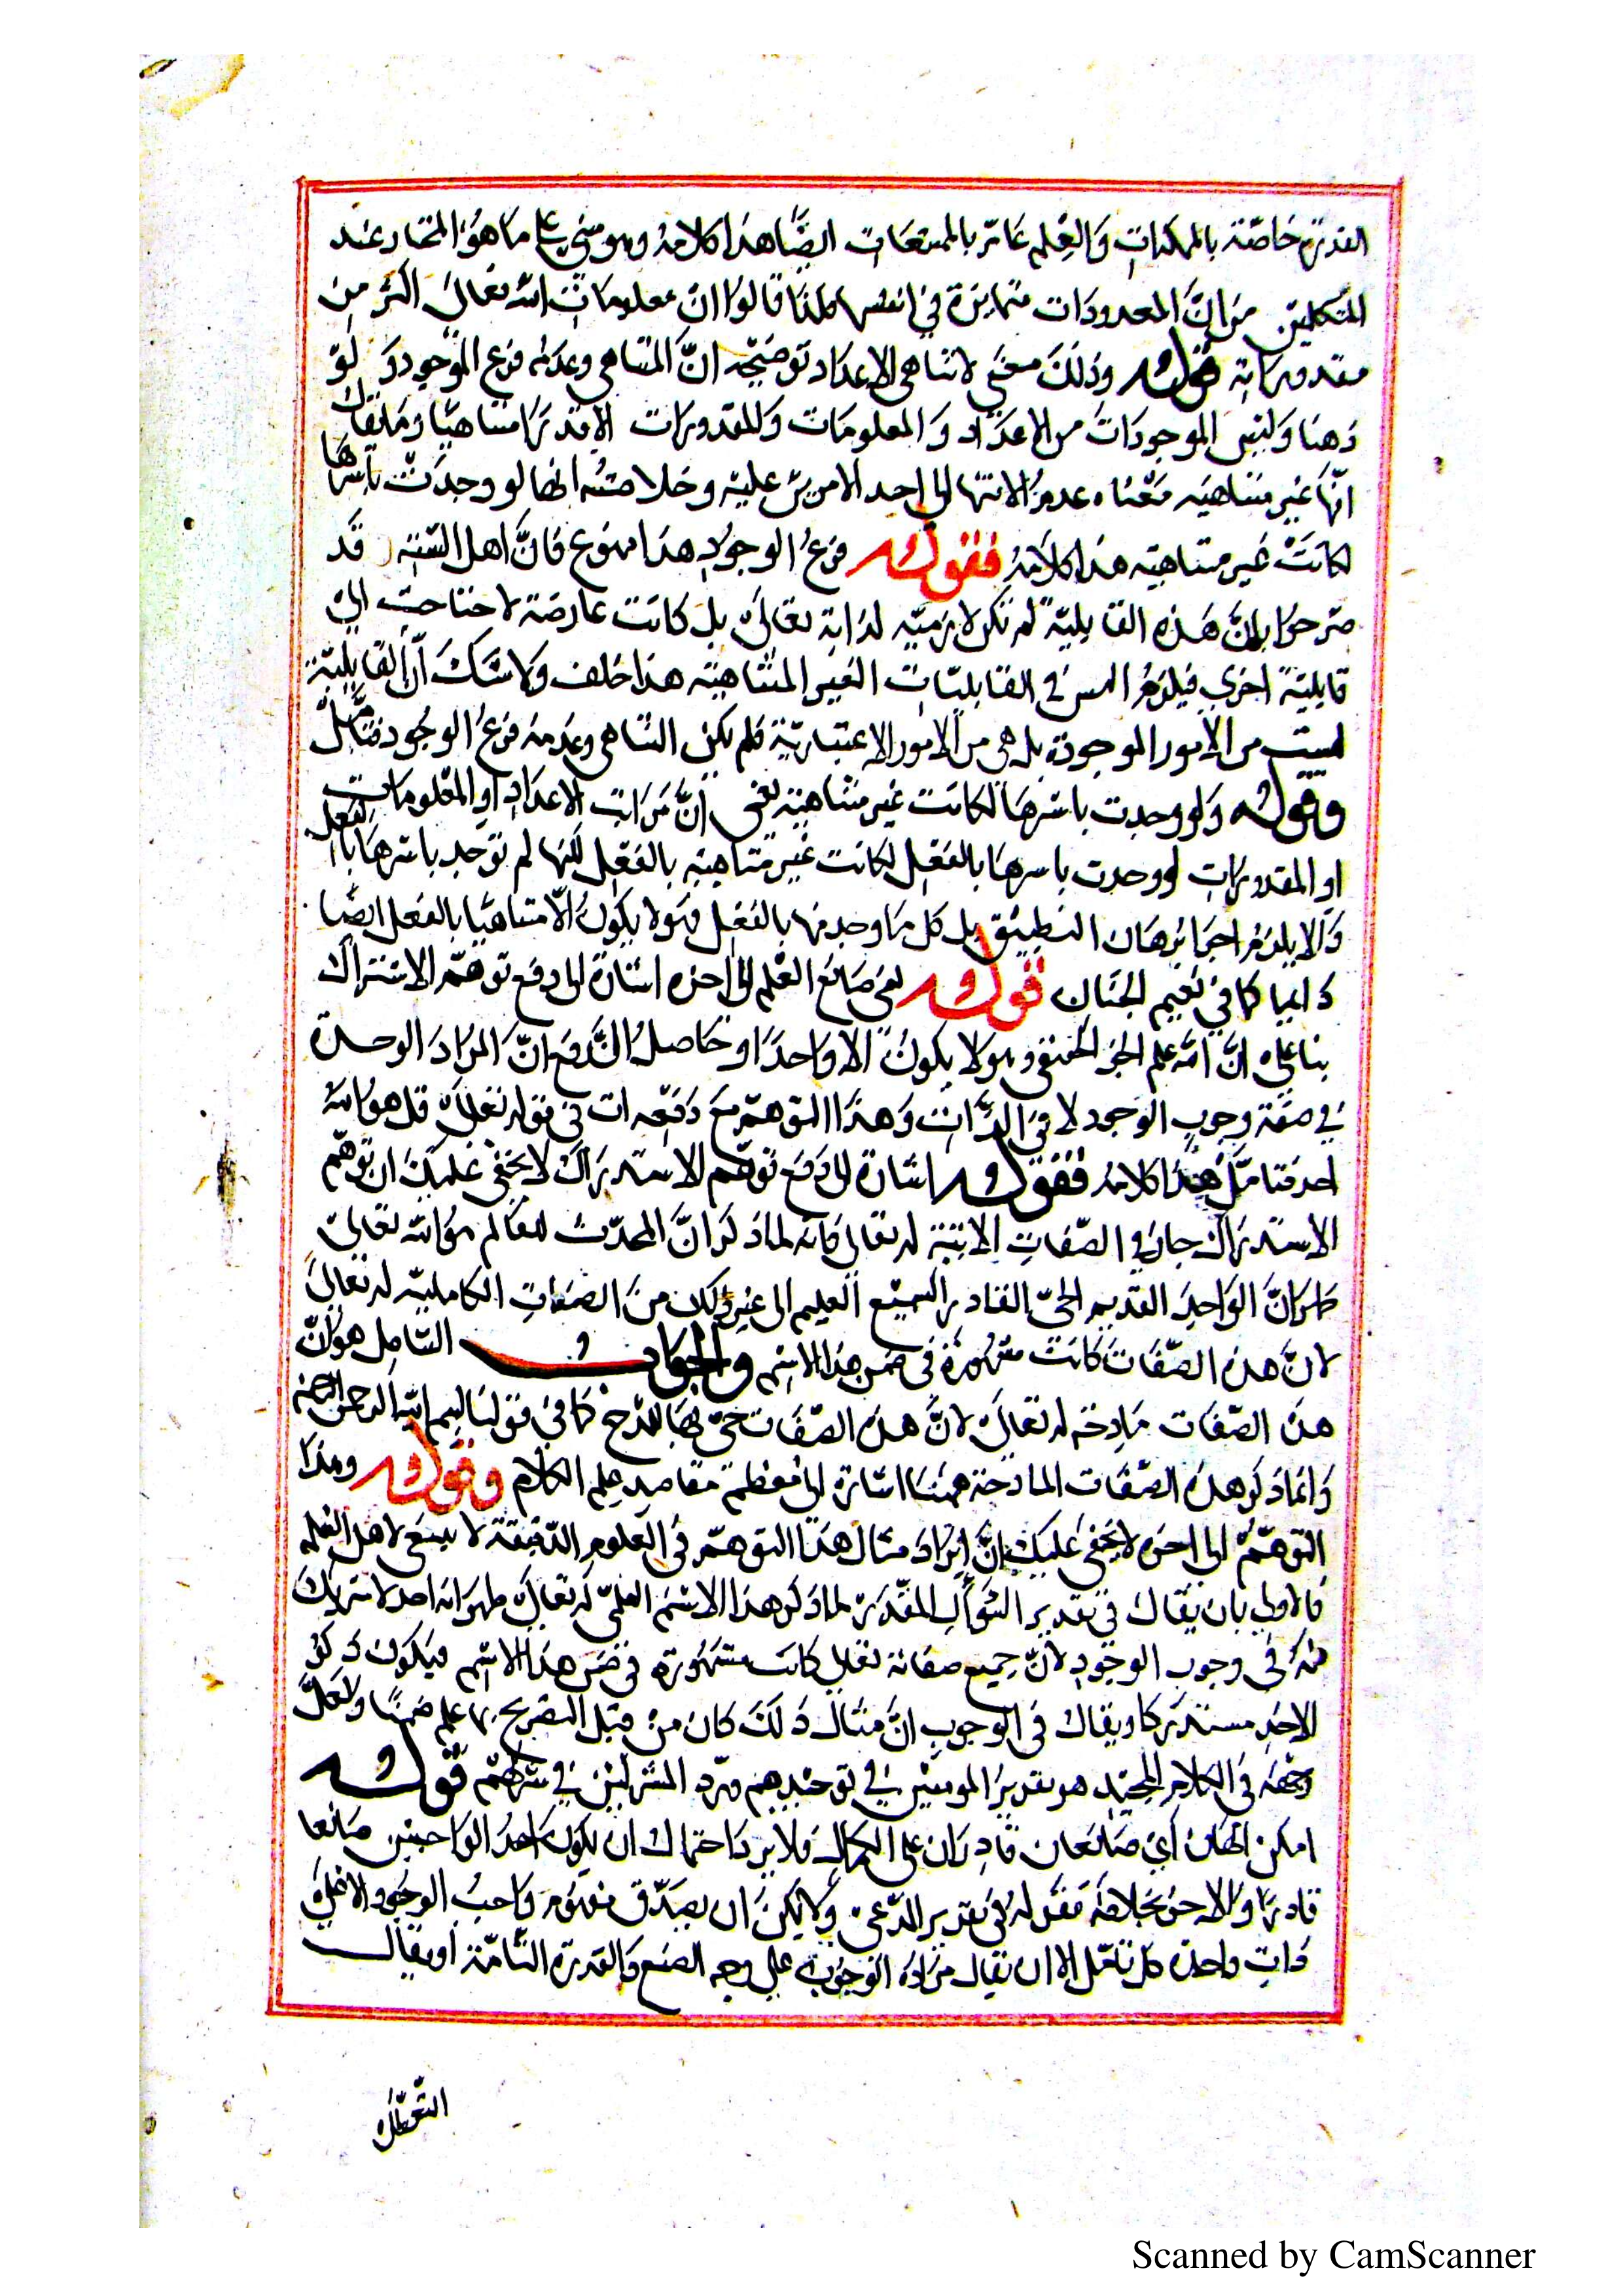 القدرة خاصّة بالممكنات وَالعِلم عَامّ بالممتنعَات ايضًا هذا كلامهُ وهو مبنيّ على مَا هُوَ المختار عند
المتكلمين من انَّ المعدودَات متمايزة في انفسها كما قالوا انّ معلومات الله تعَالىَ اكثر مِن
مقدوراته قوله وذلكَ معنَى لا تناهى الاعدَاد توضيحه انَّ المتناهى وعدمه فرع الموجود وَلوْ
ذهنا وَليسَ الموجودَات من الاعدَاد وَالمعلومَات وَالمقدورات الا قدرًا متناهيًا ومَا يقال
انّها غير متناهيه مَعْناه عدم الانتها الى احد لا مزيد عليه وخلاصتُه انها لو وجدَتْ باسْرهَا
لكانَتْ غير متناهيَه هذا كلامهُ فقوله فرعُ الوجودِ هذا ممنوع فانَّ اهل السّنة قد
صرحوا بانَّ هَذه القابليّة لو لم تكن لازميّه لذاته تعَالىَ بل كانت عارضَة لاحتاجت الىٰ
قابليّة اخرى فيلزمُ التس في القابليّات الغير المتناهيَة هذا خلف وَلا شَكّ انّ القابليّة
ليست من الامور الموجودة بل هى من الامُور الاعتبَاريّة فلم يكن التناهى وعَدمهُ فرعَ الوجُود فتامّل
وقوله وَلو وجدت باسْرها لكانت غير متناهيَة يعَنى انَّ مَرَاتبَ الاعدَادِ او المعْلومَات
او المقدورَاتِ لو وجدت باسرهَا بالفعْل لكانت غير متناهيَه بالفعْل لكنها لم توجَد باسْرهَا بالفعل
وَالا يلزمُ اجرَا برهَان التطبيق بل كل مَا وجد منها بالفعْل فهُو لا يكونُ الّا متناهيًا بالفعل ايضًا
دَايما كما في نَعِيم الجنَان قوله يعنى صَانعَ العَالم الى اخره اشارة الى دفع توهّم الاشتراك
بنا على انَّ الله علم الجزئى الحقيقى وهو لا يكونُ الا وَاحدًا وحَاصلُ الدَّفع انّ المرَادَ الوحدة
في صفة وجوب الوجود لا في الذَّات وَهذا التوهّم مَعَ دَفعِه ات في قوله تعَالىٰ قل هوَ اللهُ
احد فتامّل هذا كلامهُ فقوله اشارة الى دَفع توهّم الاستدراك لا يخفى عليكَ ان توهّم
الاستدراك جار في الصّفَاتِ الاتيَة له تعَالى فانّه لما ذكرَ انَّ المحدّث للعَالم هوَ الله تعَالىٰ
ظهر انَّ الوَاحِدَ القديم الحىّ القادر السّميع العليم الى غير ذلك منَ الصفَاتِ الكامليّه له تعَالىٰ
لانّ هذه الصّفَات كانَتْ مشهورَة في ضمن هذا الاسْم وَالجوَابُ الشامِل هوَ انّ
هذه الصّفَات مَادِحَة له تعَالىٰ لانَّ هذه الصّفَات حىّ بهَا للمَدْح كمَا في قولنا بسم الله الرحمن الرحيم
وَانمَا ذكرَ هذه الصّفَات المادحَة ههُنَا اشارة الى مُعَظمة مقَاصِد عِلم الكلام وقوله وهذا
التوهّمُ الى اخره لا يخفى عَليكَ انَّ ايْرَادَ مثال هَذا التوهّم في العلوم الدّقيقة لا يسَع لاهل العلم
فالاولى بان يقالَ في تقدير السُّؤالِ المقَدّر لما ذكرَ هذا الاسْم العلَمىّ له تعَالىٰ ظهر انه احد لا شريك
له في وجوب الوجودِ لانّ جميع صفاته تعَالى كانت مشهُورة في ضمن هذا الاسْم فيَكون ذكرُ
الاحَدِ مستدركا ويقال في الجوابِ انَّ مثال ذلكَ كانَ منْ قبَل التصريح بما علم ضمنًا وَلعَلّ
وجْههُ في الكلام المجيْد هو تقديرَ المومنين في توحيدهم وردّ المشركيْن في شركهمْ قوله
امكن الهَان اىْ صَانعَان قادرَان على الكمَال فَلا يرد احتمال ان يكون احَدُ الوَاجبين صَانعا
قادرا وَالاخرُ بخلافه فقوله في تقدير المدّعى وَلا يمكنُ ان يصَدّق مفهُوم وَاجبُ الوجود الا على
ذاتِ واحدة محل تامّل الا ان يقال مرَادهُ الوَجوبُ على وجه الصنع وَالقدرة التامّة او يقال